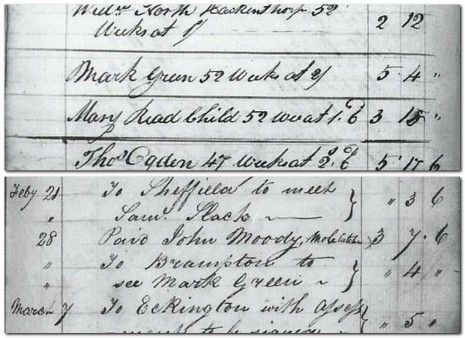 Willm North Hackenthorp 52
Weeks at 1/ 2 12
Mark Green 52 Weeks at 2/ 5 4 "
Mary Read Child 52 W at 1.6 3 18 "
Thos Ogden 47 Weeks at 2.6 5 17 6
Feby 21 To Sheffield to meet
" Saml. Slack " 3 6
28 Paid John Moody, Mole Catcher 3 7 . 6
" To Brampton to
" see Mark Green " 4 "
March 7 To Eckington with Assess
ments to be signed " 5 "